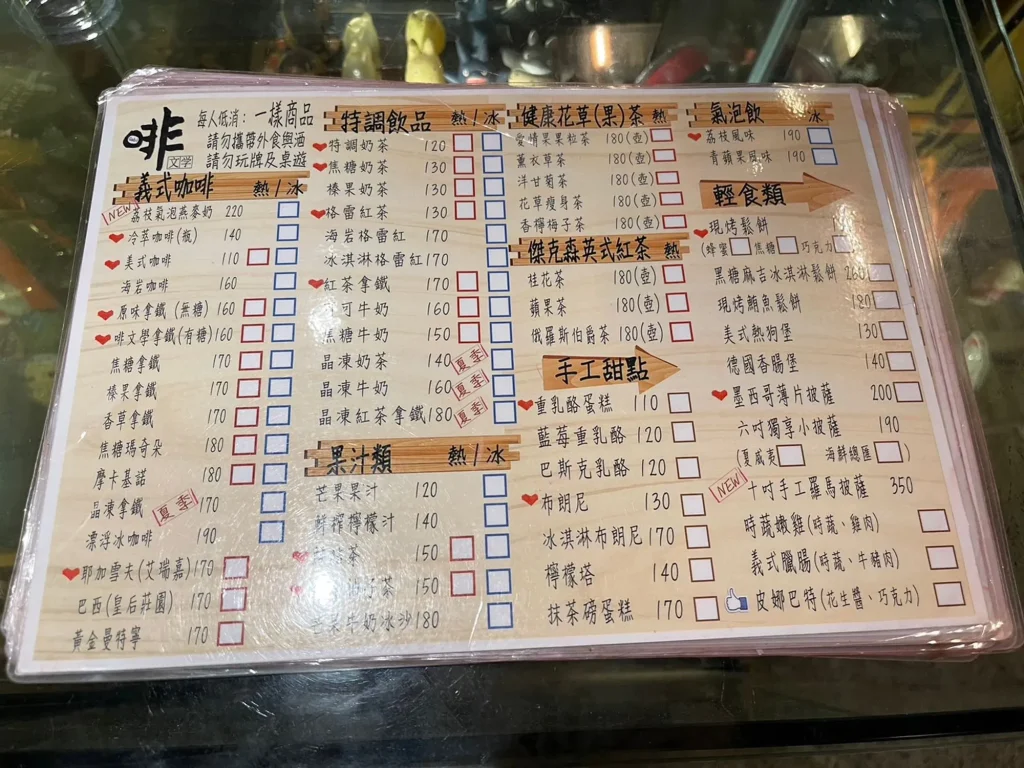 啡
文学
每人低消：一樣商品
請勿攜帶外食與酒
請勿玩牌及桌遊
義式咖啡 熱/冰
NEW 荔枝氣泡燕麥奶 220
冷萃咖啡(瓶) 140
美式咖啡 110
海岩咖啡 160
原味拿鐵(無糖) 160
啡文學拿鐵(有糖) 160
焦糖拿鐵 170
榛果拿鐵 170
香草拿鐵 170
焦糖瑪奇朵 180
摩卡基諾 180
晶凍拿鐵 夏季 170
漂浮冰咖啡 190
耶加雪夫(艾瑞嘉) 170
巴西(皇后莊園) 170
黃金曼特寧 170
特調飲品 熱/冰
特調奶茶 120
焦糖奶茶 130
榛果奶茶 130
格雷紅茶 130
海岩格雷紅 170
冰淇淋格雷紅 170
紅茶拿鐵 170
可牛奶 160
焦糖牛奶 150
晶凍奶茶 140 夏季
晶凍牛奶 160 夏季
晶凍紅茶拿鐵 180 夏季
果汁類 熱/冰
芒果果汁 120
鮮榨檸檬汁 140
茶 150
茶 150
牛奶冰沙 180
健康花草(果)茶 熱
愛情果果粒茶 180(壺)
薰衣草茶 180(壺)
洋甘菊茶 180(壺)
花草瘦身茶 180(壺)
香檸梅子茶 180(壺)
傑克森英式紅茶 熱
桂花茶 180(壺)
蘋果茶 180(壺)
俄羅斯伯爵茶 180(壺)
手工甜點
重乳酪蛋糕 110
藍莓重乳酪 120
巴斯克乳酪 120
布朗尼 130
冰淇淋布朗尼 170
檸檬塔 140
抹茶磅蛋糕 170
氣泡飲 冰
荔枝風味 190
青蘋果風味 190
輕食類
現烤鬆餅
(蜂蜜 焦糖 巧克力
黑糖麻吉冰淇淋鬆餅 260
現烤鮪魚鬆餅 180
美式熱狗堡 130
德國香腸堡 140
墨西哥薄片披薩 200
六吋獨享小披薩 190
(夏威夷 海鮮總匯 )
NEW 十吋手工羅馬披薩 350
時蔬嫩雞(時蔬、雞肉)
義式臘腸(時蔬、牛豬肉)
皮娜巴特(花生醬、巧克力)